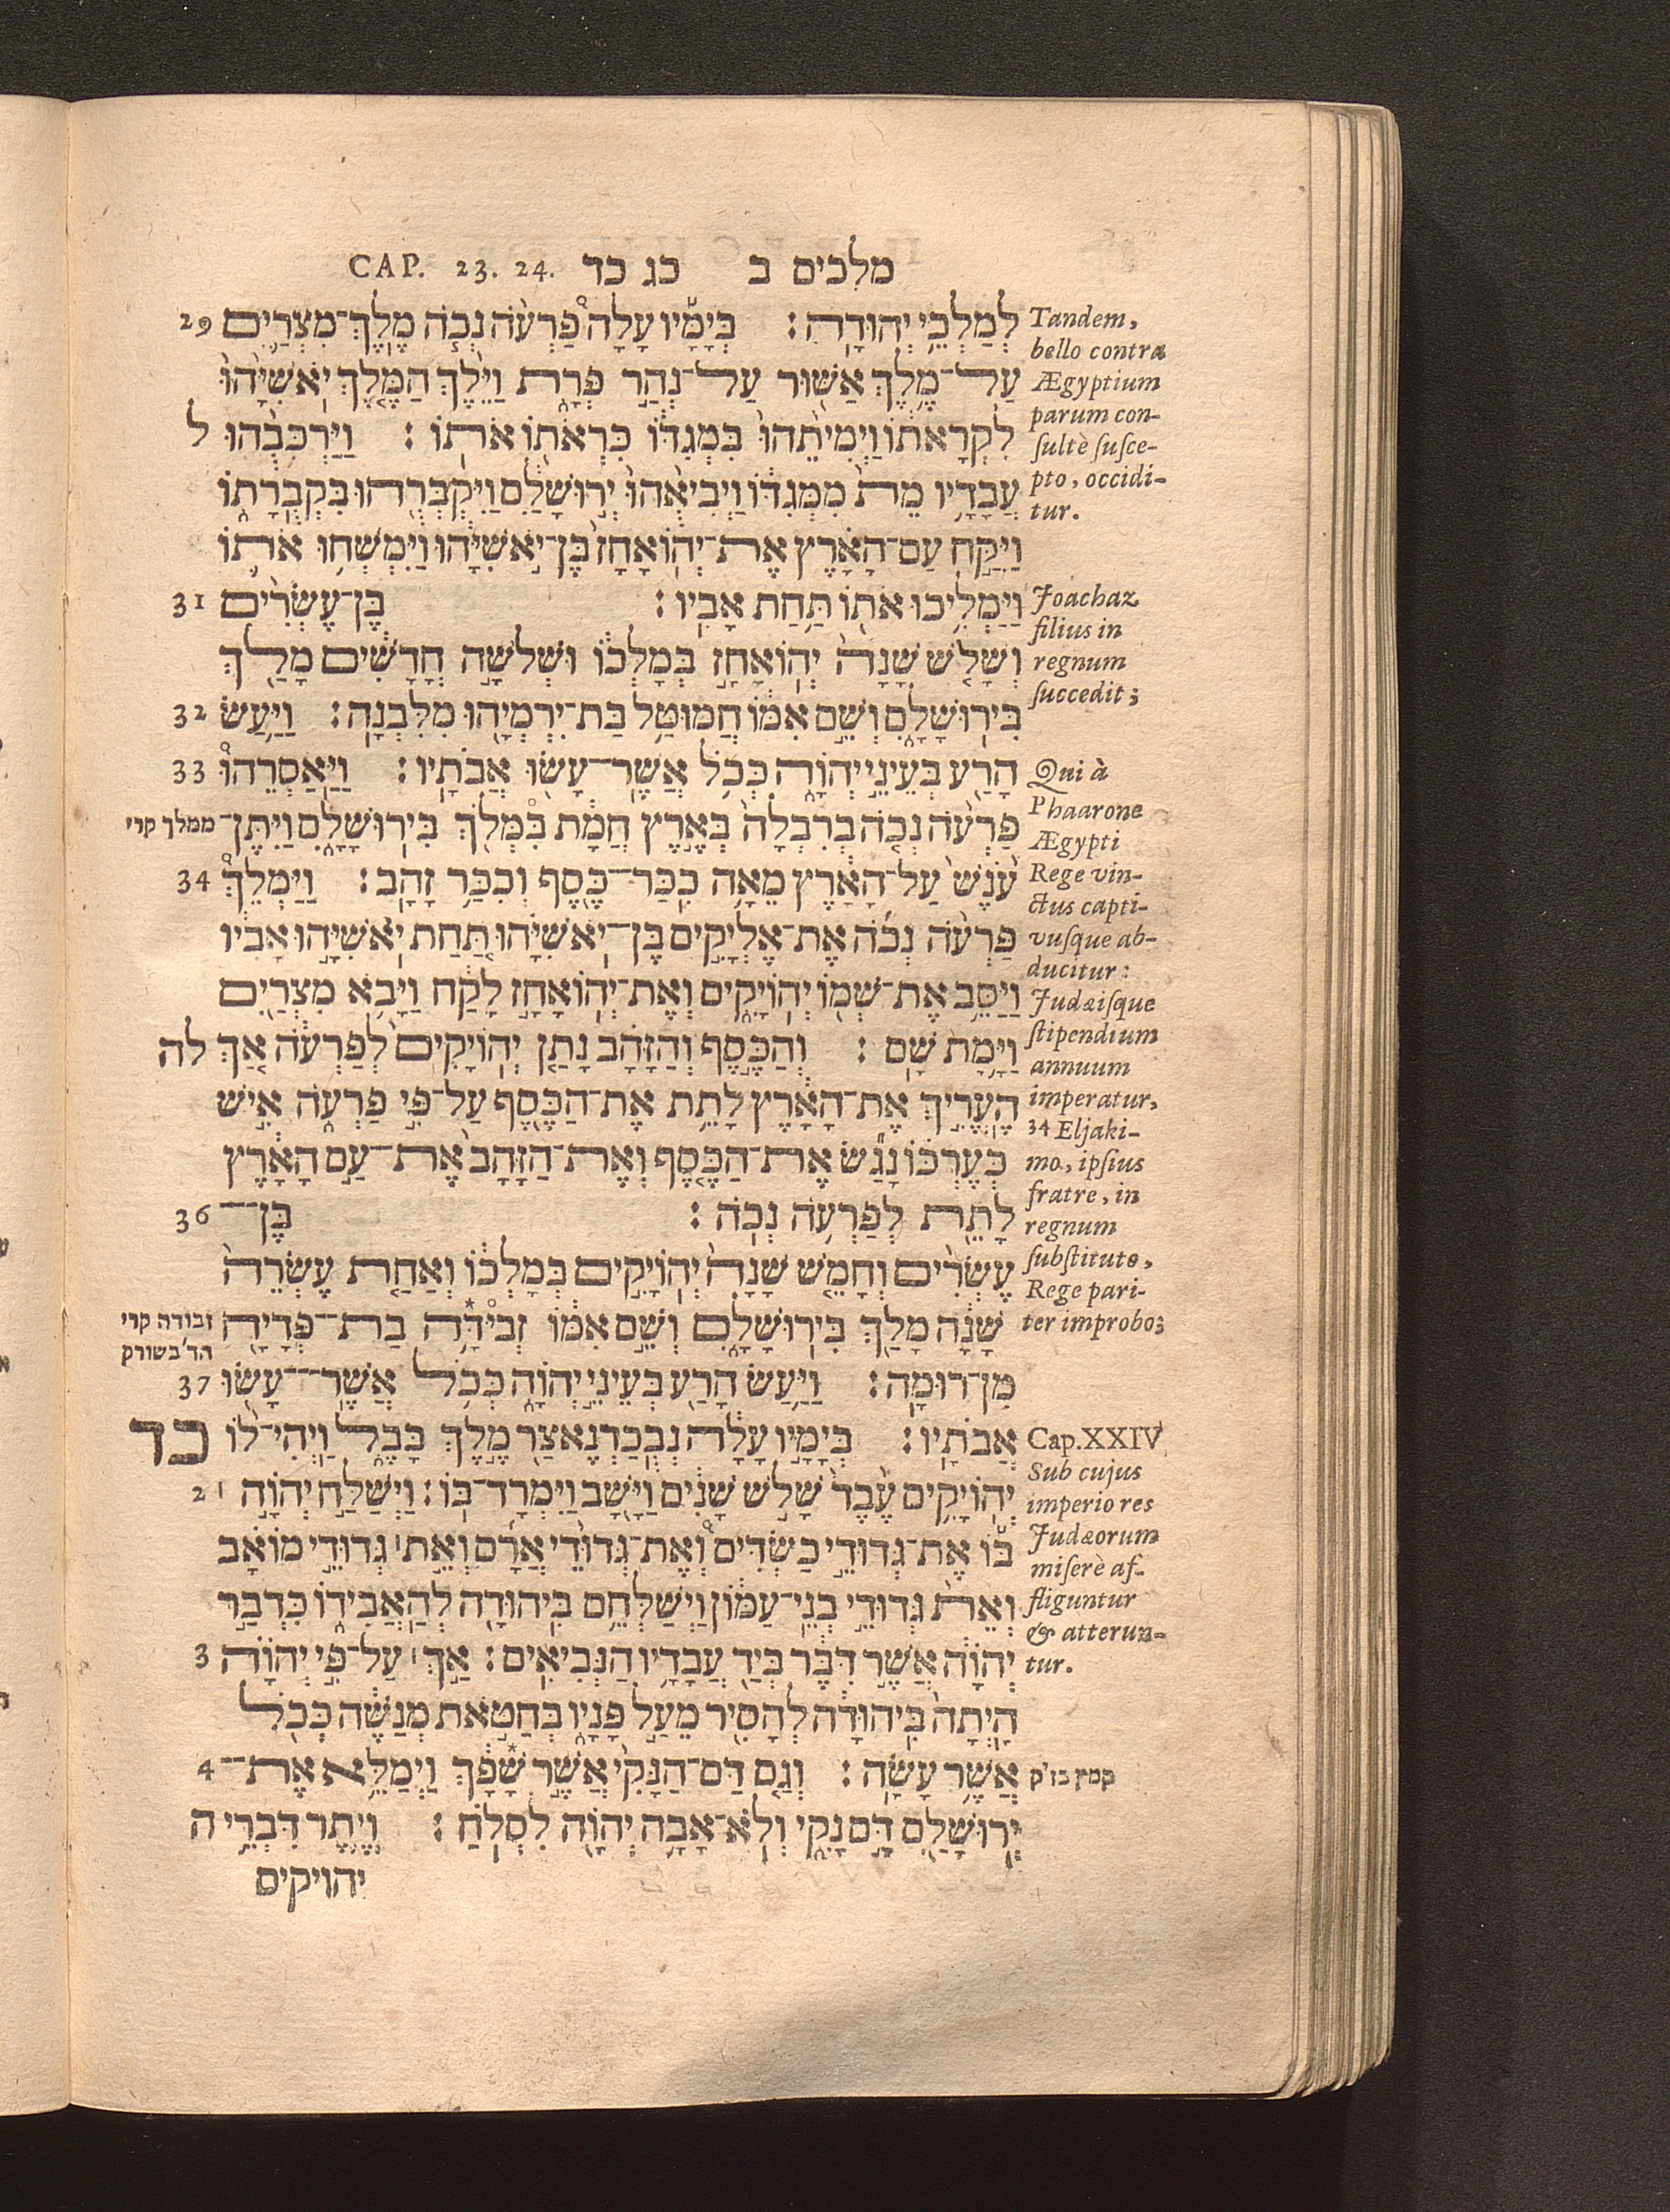 CAP. 23. 24. מלכים ב כג כד
לְמַלְכֵ֥י יְהוּדָֽה׃ בְּיָמָ֡יו עָלָה֩ פַרְעֹ֨ה נְכֹ֧ה מֶֽלֶךְ־מִצְרַ֛יִם 29
עַל־מֶ֥לֶךְ אַשּׁ֖וּר עַל־נְהַר־פְּרָ֑ת וַיֵּ֨לֶךְ הַמֶּ֤לֶךְ יֹאשִׁיָּ֙הוּ֙
לִקְרָאת֔וֹ וַיְמִיתֵ֙הוּ֙ בִּמְגִדּ֔וֹ כִּרְאֹת֖וֹ אֹתֽוֹ׃ וַיַּרְכִּבֻ֨הוּ ל
עֲבָדָ֥יו מֵת֙ מִמְּגִדּ֔וֹ וַיְבִיאֻ֙הוּ֙ יְר֣וּשָׁלִַ֔ם וַֽיִּקְבְּרֻ֖הוּ בִּקְבֻֽרָת֑וֹ
וַיִּקַּ֣ח עַם־הָאָ֗רֶץ אֶת־יְהֽוֹאָחָז֙ בֶּן־יֹ֣אשִׁיָּ֔הוּ וַיִּמְשְׁח֥וּ אֹת֛וֹ
וַיַּמְלִ֥יכוּ אֹת֖וֹ תַּ֥חַת אָבִֽיו׃ בֶּן־עֶשְׂרִ֨ים 31
וְשָׁלֹ֤שׁ שָׁנָה֙ יְהוֹאָחָ֣ז בְּמָלְכ֔וֹ וּשְׁלֹשָׁ֣ה חֳדָשִׁ֔ים מָלַ֖ךְ
בִּירֽוּשָׁלִָ֑ם וְשֵׁ֣ם אִמּ֔וֹ חֲמוּטַ֥ל בַּת־יִרְמְיָ֖הוּ מִלִּבְנָֽה׃ וַיַּ֥עַשׂ 32
הָרַ֖ע בְּעֵינֵ֣י יְהוָֹ֑ה כְּכֹ֥ל אֲשֶׁר־עָשׂ֖וּ אֲבֹתָֽיו׃ וַיַּאַסְרֵהוּ֩ 33
פַרְעֹ֨ה נְכֹ֤ה בְרִבְלָה֙ בְּאֶ֣רֶץ חֲמָ֔ת בִּמְּלֹ֖ךְ בִּירֽוּשָׁלִָ֑ם וַיִּתֶּן־ ממלך קרי
עֹ֙נֶשׁ֙ עַל־הָאָ֔רֶץ מֵאָ֥ה כִכַּר־כֶּ֖סֶף וְכִכַּ֥ר זָהָֽב׃ וַיַּמְלֵךְ֩ 34
פַּרְעֹ֨ה נְכֹ֜ה אֶת־אֶלְיָקִ֣ים בֶּן־יֹאשִׁיָּ֗הוּ תַּ֚חַת יֹאשִׁיָּ֣הוּ אָבִ֔יו
וַיַּסֵּ֥ב אֶת־שְׁמ֖וֹ יְהוֹיָקִ֑ים וְאֶת־יְהוֹאָחָ֣ז לָקָ֔ח וַיָּבֹ֥א מִצְרַ֖יִם
וַיָּ֥מָת שָֽׁם׃ וְהַכֶּ֣סֶף וְהַזָּהָ֗ב נָתַ֤ן יְהֽוֹיָקִים֙ לְפַרְעֹ֔ה אַ֚ךְ לה
הֶעֱרִ֣יךְ אֶת־הָאָ֔רֶץ לָתֵ֥ת אֶת־הַכֶּ֖סֶף עַל־פִּ֣י פַרְעֹ֑ה אִ֣ישׁ
כְּעֶרְכּ֗וֹ נָגַ֞שׂ אֶת־הַכֶּ֤סֶף וְאֶת־הַזָּהָב֙ אֶת־עַ֣ם הָאָ֔רֶץ
לָתֵ֖ת לְפַרְעֹ֥ה נְכֹֽה׃ בֶּן־ 36
עֶשְׂרִ֨ים וְחָמֵ֤שׁ שָׁנָה֙ יְהוֹיָקִ֣ים בְּמָלְכ֔וֹ וְאַחַ֤ת עֶשְׂרֵה֙
שָׁנָ֔ה מָלַ֖ךְ בִּירוּשָׁלִָ֑ם וְשֵׁ֣ם אִמּ֔וֹ זְבִידָּ֥ה בַת־פְּדָיָ֖ה זבודה קרי
הד׳ בשורק
מִן־רוּמָֽה׃ וַיַּ֥עַשׂ הָרַ֖ע בְּעֵינֵ֣י יְהוָֹ֑ה כְּכֹ֥ל אֲשֶׁר־עָשׂ֖וּ 37
אֲבֹתָֽיו׃ בְּיָמָ֣יו עָלָ֔ה נְבֻכַדְנֶאצַּ֖ר מֶ֣לֶךְ בָּבֶ֑ל וַיְהִי־ל֨וֹ כד
יְהוֹיָקִ֥ים עֶ֙בֶד֙ שָׁלֹ֣שׁ שָׁנִ֔ים וַיָּ֖שָׁב וַיִּמְרָד־בּֽוֹ׃ וַיְשַׁלַּ֣ח יְהוָֹ֣ה ׀ 2
בּ֡וֹ אֶת־גְּדוּדֵ֣י כַשְׂדִּים֩ וְאֶת־גְּדוּדֵ֨י אֲרָ֜ם וְאֵ֣ת ׀ גְּדוּדֵ֣י מוֹאָ֗ב
וְאֵת֙ גְּדוּדֵ֣י בְנֵֽי־עַמּ֔וֹן וַיְשַׁלְּחֵ֥ם בִּֽיהוּדָ֖ה לְהַֽאֲבִיד֑וֹ כִּדְבַ֣ר
יְהוָֹ֔ה אֲשֶׁ֣ר דִּבֶּ֔ר בְּיַ֖ד עֲבָדָ֥יו הַנְּבִיאִֽים׃ אַ֣ךְ ׀ עַל־פִּ֣י יְהוָֹ֗ה 3
הָֽיְתָה֙ בִּֽיהוּדָ֔ה לְהָסִ֖יר מֵעַ֣ל פָּנָ֑יו בְּחַטֹּ֣את מְנַשֶּׁ֔ה כְּכֹ֖ל
אֲשֶׁ֥ר עָשָֽׂה׃ וְגַ֤ם דַּֽם־הַנָּקִי֙ אֲשֶׁ֣ר שָׁפָ֔ךְ וַיְמַלֵּ֥א אֶת־ 4 קמץ בז״ק
יְרוּשָׁלִַ֖ם דָּ֣ם נָקִ֑י וְלֹֽא־אָבָ֥ה יְהוָֹ֖ה לִסְלֹֽחַ׃ וְיֶ֛תֶר דִּבְרֵ֥י ה
יהויקים
Tandem,
bello contra
Ægyptium
parum con-
sultè susce-
pto, occidi-
tur.
Joachaz
filius in
regnum
succedit;
Qui à
Phaarone
Ægypti
Rege vin-
ctus capti-
vusque ab-
ducitur:
Judæisque
stipendium
annuum
imperatur,
34 Eljaki-
mo, ipsius
fratre, in
regnum
substituto,
Rege pari-
ter improbo;
Cap. XXIV
Sub cujus
imperio res
Judæorum
miserè af-
fliguntur
& atterun-
tur.